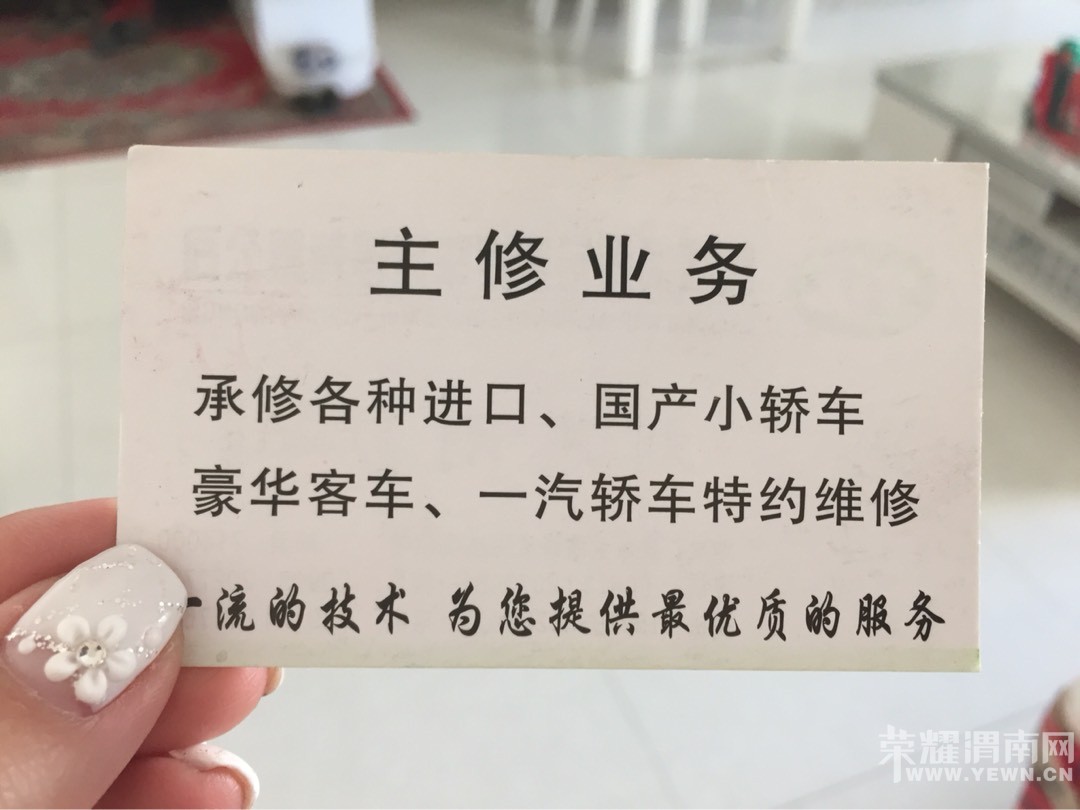 主修业务
承修各种进口、国产小轿车
豪华客车、一汽轿车特约维修
一流的技术 为您提供最优质的服务
荣耀渭南网
WWW.YEWN.CN